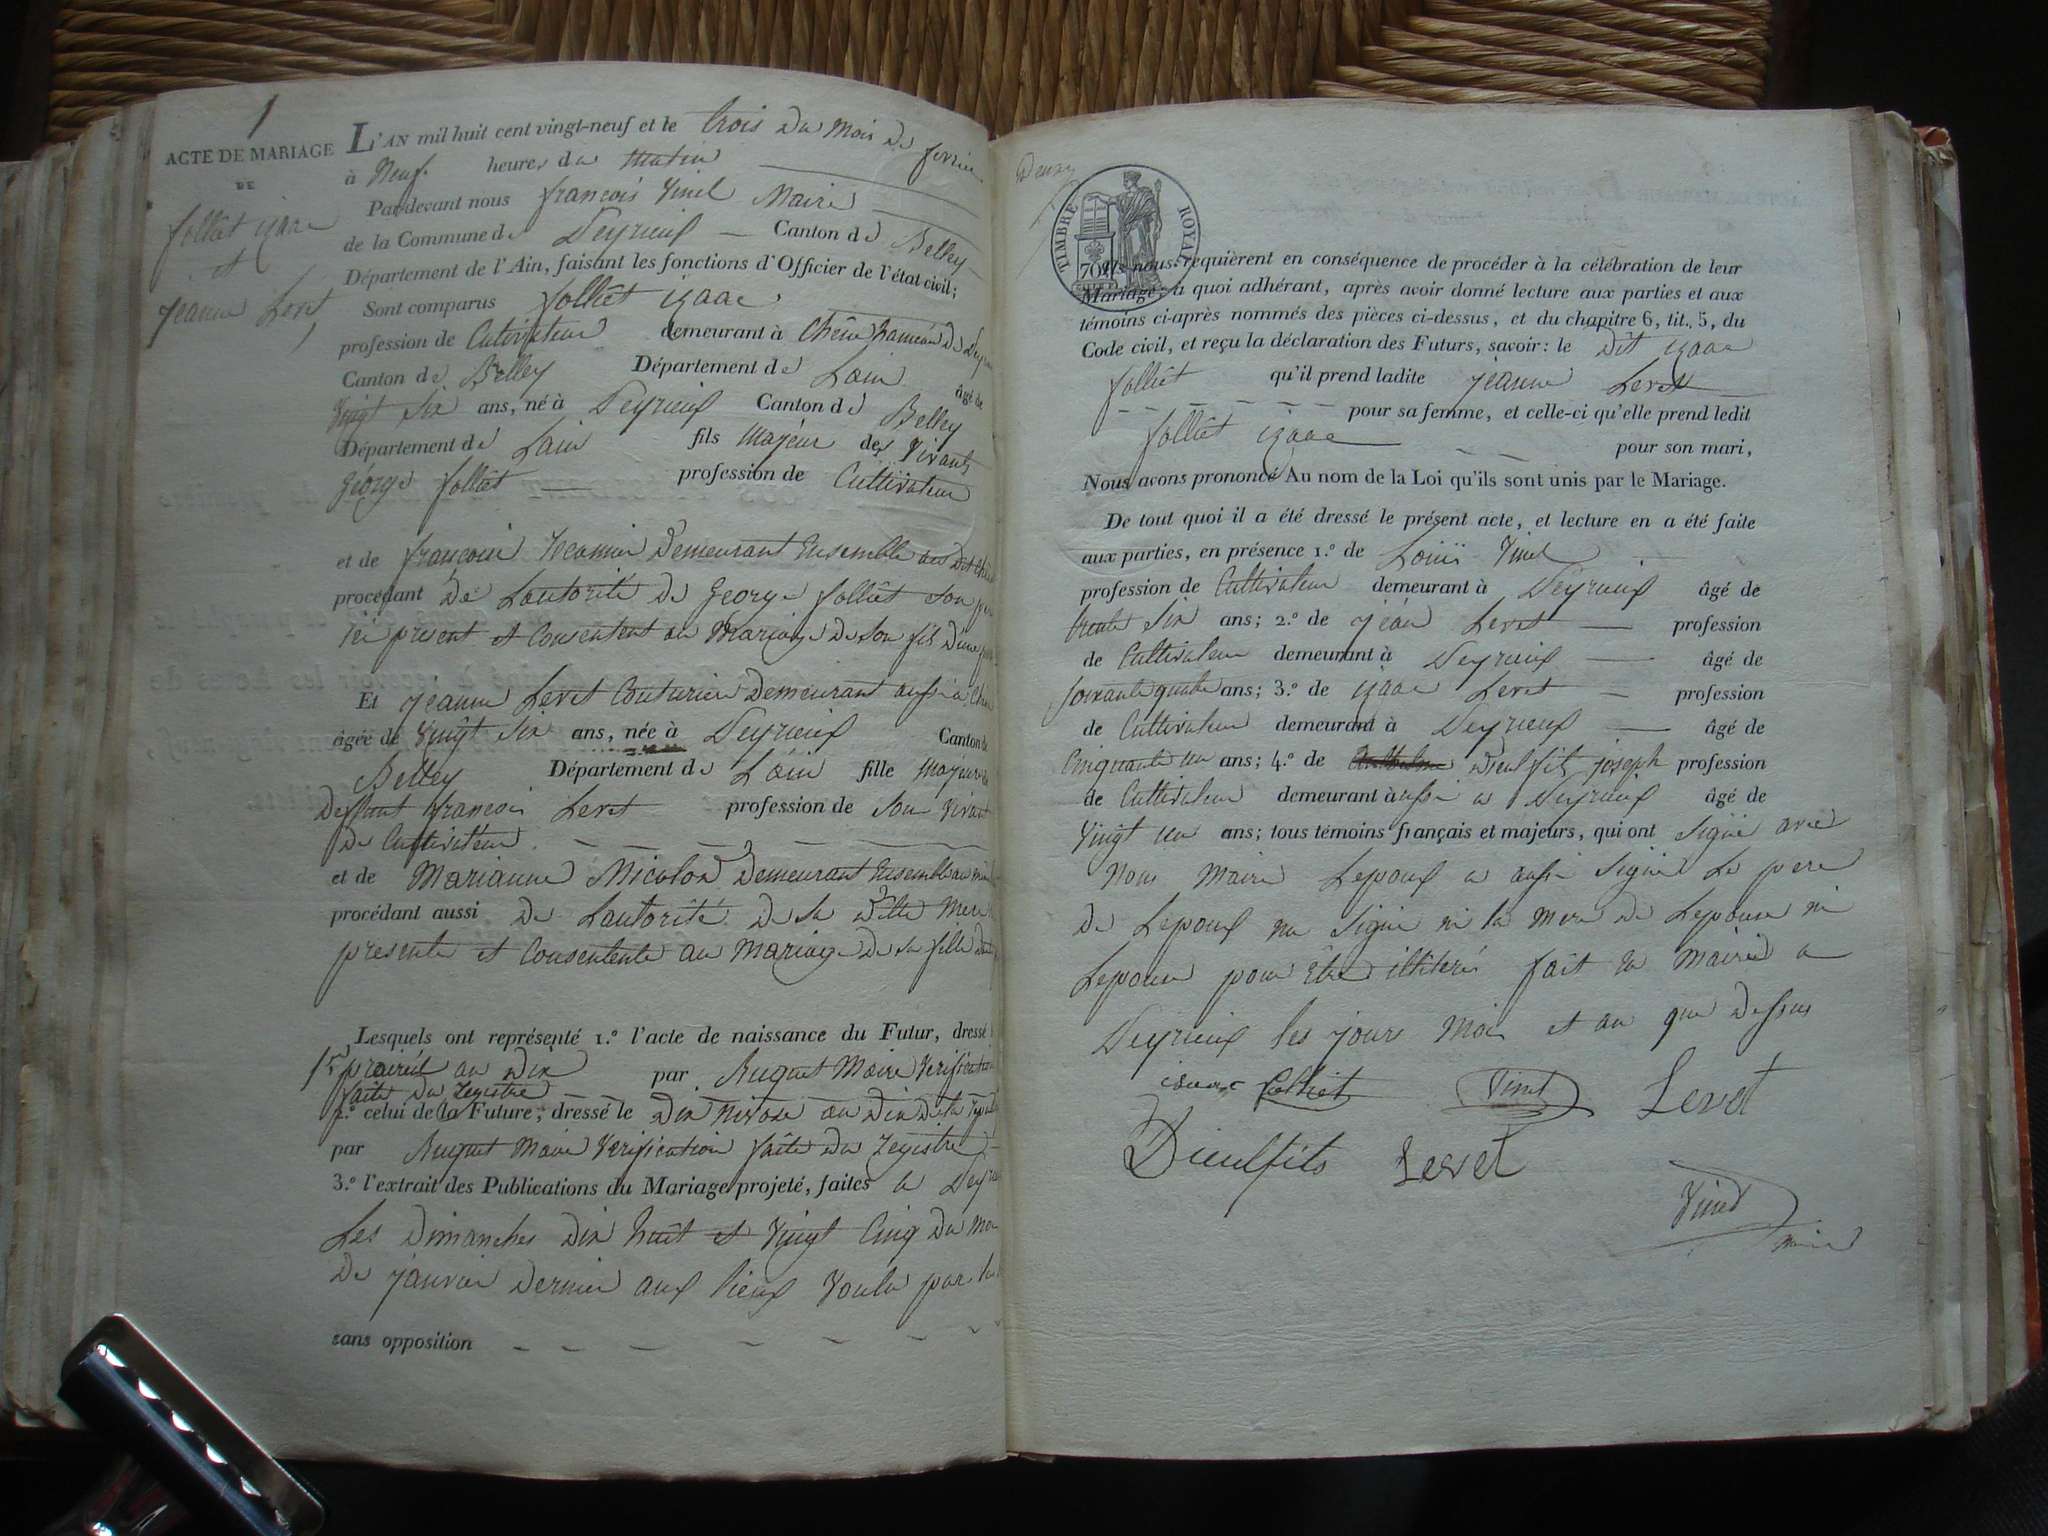 1
ACTE DE MARIAGE
DE
folliet izaac
et
jeanne Levet
L'AN mil huit cent vingt-neuf et le trois du mois de fevrier
à Neuf heures du Matin
Pardevant nous françois Vinet Maire
de la Commune de Peyrieux Canton de Belley
Département de l'Ain, faisant les fonctions d'Officier de l'état civil;
Sont comparus folliet izaac
profession de Cultivateur demeurant à Chêne hameau de
Canton de Belley Département de Lain âgé de
Vingt Six ans, né à Peyrieux Canton de Belley
Département de Lain fils Majeur des Vivants
George folliet profession de Cultivateur
et de françoise Demeurant Ensemble au Dit
procédant de Lautorité de George folliet Son
ici present et Consentent au Mariage de Son fils D'une
Et jeanne Levet Couturiere Demeurant aussi a
âgée de Vingt Six ans, née à Peyrieux Canton de
Belley Département de Lain fille Majeure
Deffunt françois Levet profession de Son Vivant
de Cultivateur
et de Marianne Micolod Demeurant Ensemble au
procédant aussi de Lautorité de Sa ditte Mere
presente et Consentente au Mariage de Sa fille
Lesquels ont représenté 1.º l'acte de naissance du Futur, dressé
15 prairial an Dix par Ruguet Maire Verification
faite du Registre
2.º celui de la Future, dressé le Dix Nivose an Dix de la
par Ruguet Maire Verification faite du Registre
3.º l'extrait des Publications du Mariage projeté, faites a
Les Dimanches Dix huit et Vingt Cinq du
De janvier Dernier aux lieux Voulu par la
sans opposition
TIMBRE ROYAL
70
Ils nous requièrent en conséquence de procéder à la célébration de leur
Mariage, à quoi adhérant, après avoir donné lecture aux parties et aux
témoins ci-après nommés des pièces ci-dessus, et du chapitre 6, tit. 5, du
Code civil, et reçu la déclaration des Futurs, savoir: le Dit izaac
folliet qu'il prend ladite jeanne Levet
pour sa femme, et celle-ci qu'elle prend ledit
folliet izaac pour son mari,
Nous avons prononcé Au nom de la Loi qu'ils sont unis par le Mariage.
De tout quoi il a été dressé le présent acte, et lecture en a été faite
aux parties, en présence 1.º de Loüis Vinet
profession de Cultivateur demeurant à Peyrieux âgé de
trente Six ans; 2.º de jean Levet profession
de Cultivateur demeurant à Peyrieux âgé de
soixante quatre ans; 3.º de izaac Levet profession
de Cultivateur demeurant à Peyrieux âgé de
Cinquante un ans; 4.º de Dieulfils joseph profession
de Cultivateur demeurant à aussi a Peyrieux âgé de
Vingt un ans; tous témoins français et majeurs, qui ont Signé avec
Nous Maire Lepoux a aussi Signé Le pere
de Lepoux na Signé ni la Mere de Lepouse ni
Lepouse pour être illiteré fait en Mairie a
Peyrieux les jours Mois et an que Dessus
isaac folliet Vinet Levet
Dieulfils Levet
Vinet
maire